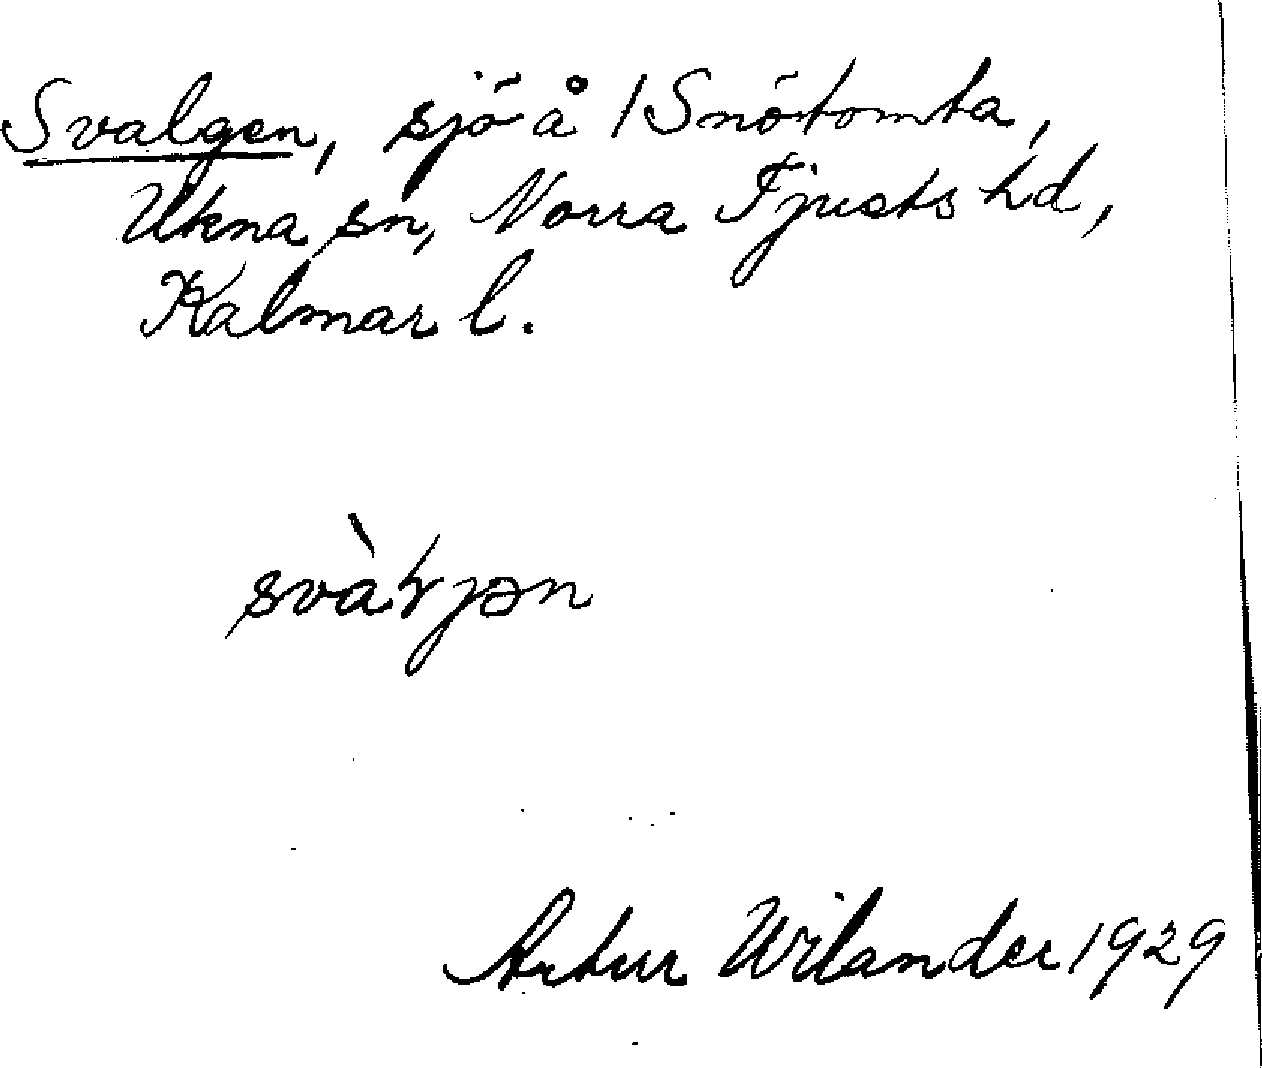 Svalgen, sjö å 1 Snötomta,
Ukna sn, Norra Tjusts hd,
Kalmar l.
svàljən
Artur Wilander 1929